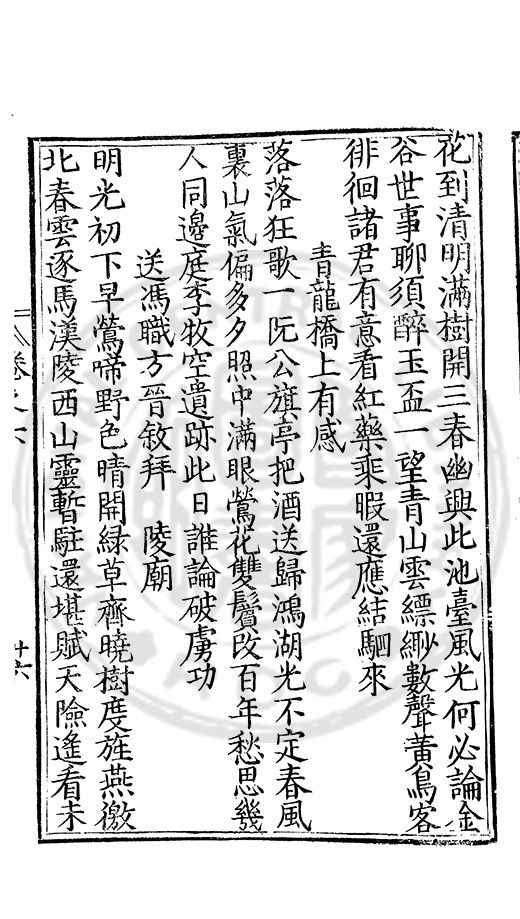 花到清明滿樹開三春幽興此池臺風光何必論金
谷世事聊須醉玉盃一望青山雲縹緲數聲黃鳥客
徘徊諸君有意看紅藥乘暇還應結駟來
青龍橋上有感
落落狂歌一阮公旗亭把酒送歸鴻湖光不定春風
裏山氣偏多夕照中滿眼鶯花雙鬢改百年愁思幾
人同邊庭李牧空遺跡此日誰論破虜功
送馮職方晉敘拜　陵廟
明光初下早鶯啼野色晴開綠草齊曉樹度旌燕徼
北春雲逐馬漢陵西山靈暫駐還堪賦天險遙看未
卷之六
十六